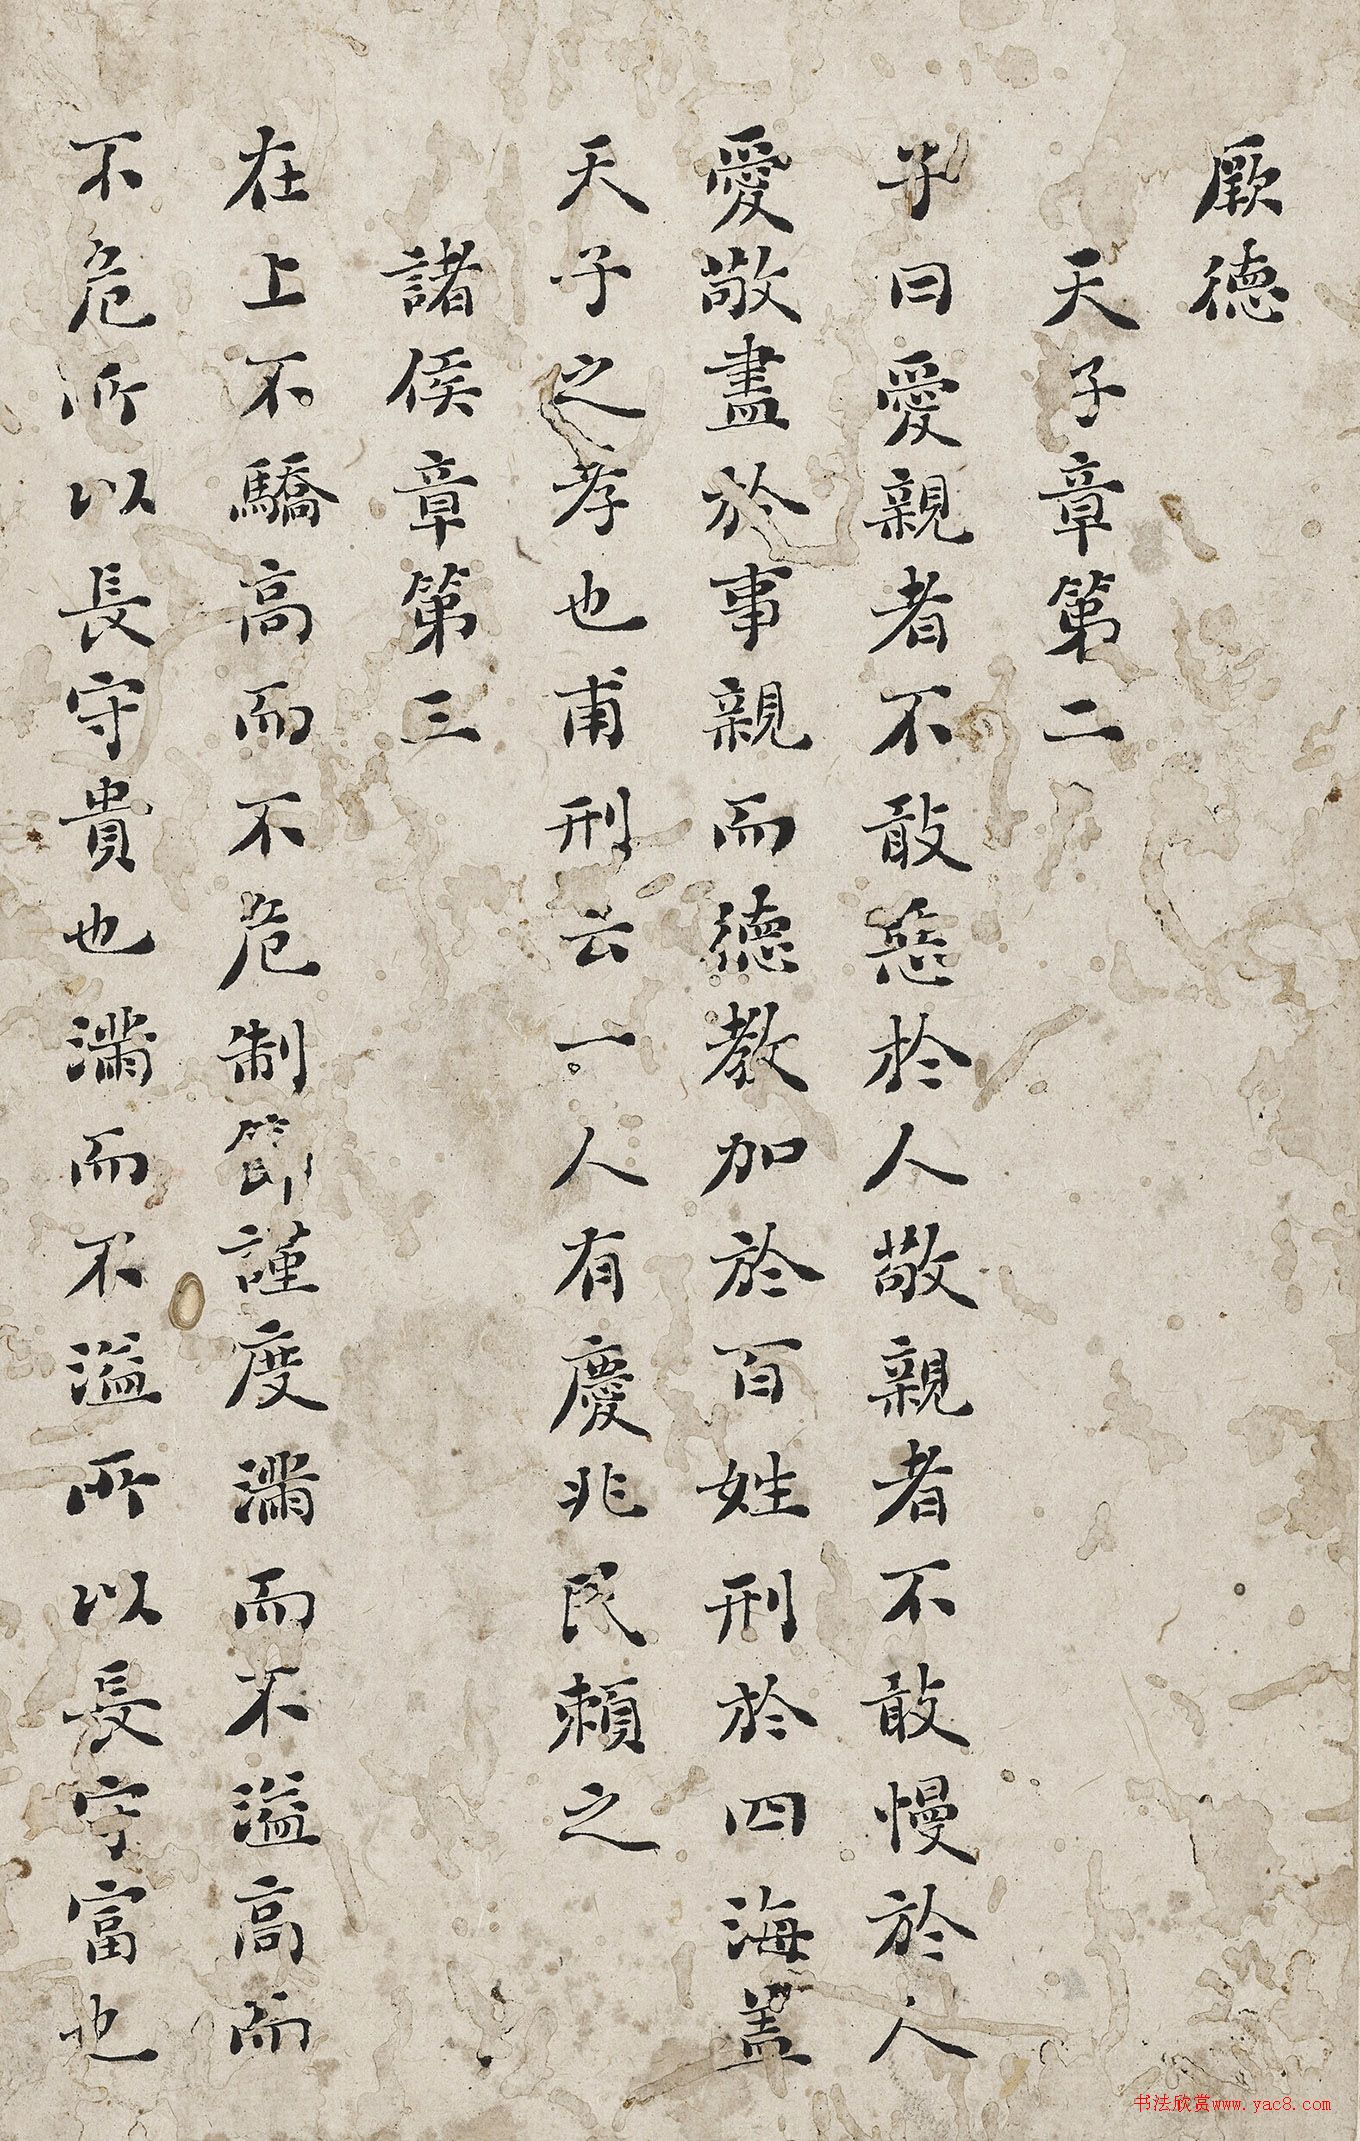 厥德
天子章第二
子曰愛親者不敢惡於人敬親者不敢慢於人
愛敬盡於事親而德教加於百姓刑於四海盖
天子之孝也甫刑云一人有慶兆民賴之
諸侯章第三
在上不驕高而不危制節謹度滿而不溢高而
不危所以長守貴也滿而不溢所以長守富也
书法欣赏www.yac8.com